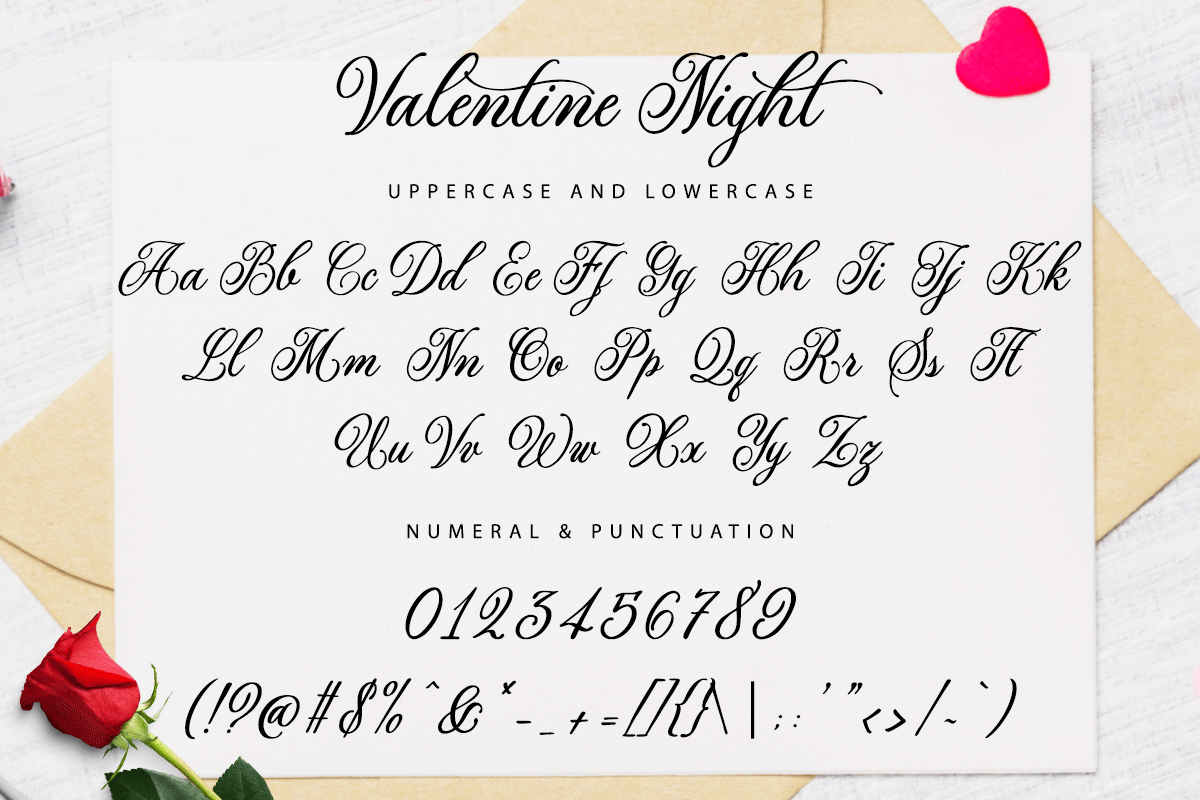 Valentine Night
UPPERCASE AND LOWERCASE
Aa Bb Cc Dd Ee Ff Gg Hh Ii Jj Kk
Ll Mm Nn Oo Pp Qq Rr Ss Tt
Uu Vv Ww Xx Yy Zz
NUMERAL & PUNCTUATION
0123456789
(!?@#$%^&*-_+=[]{}\|;:'"<>/~`)